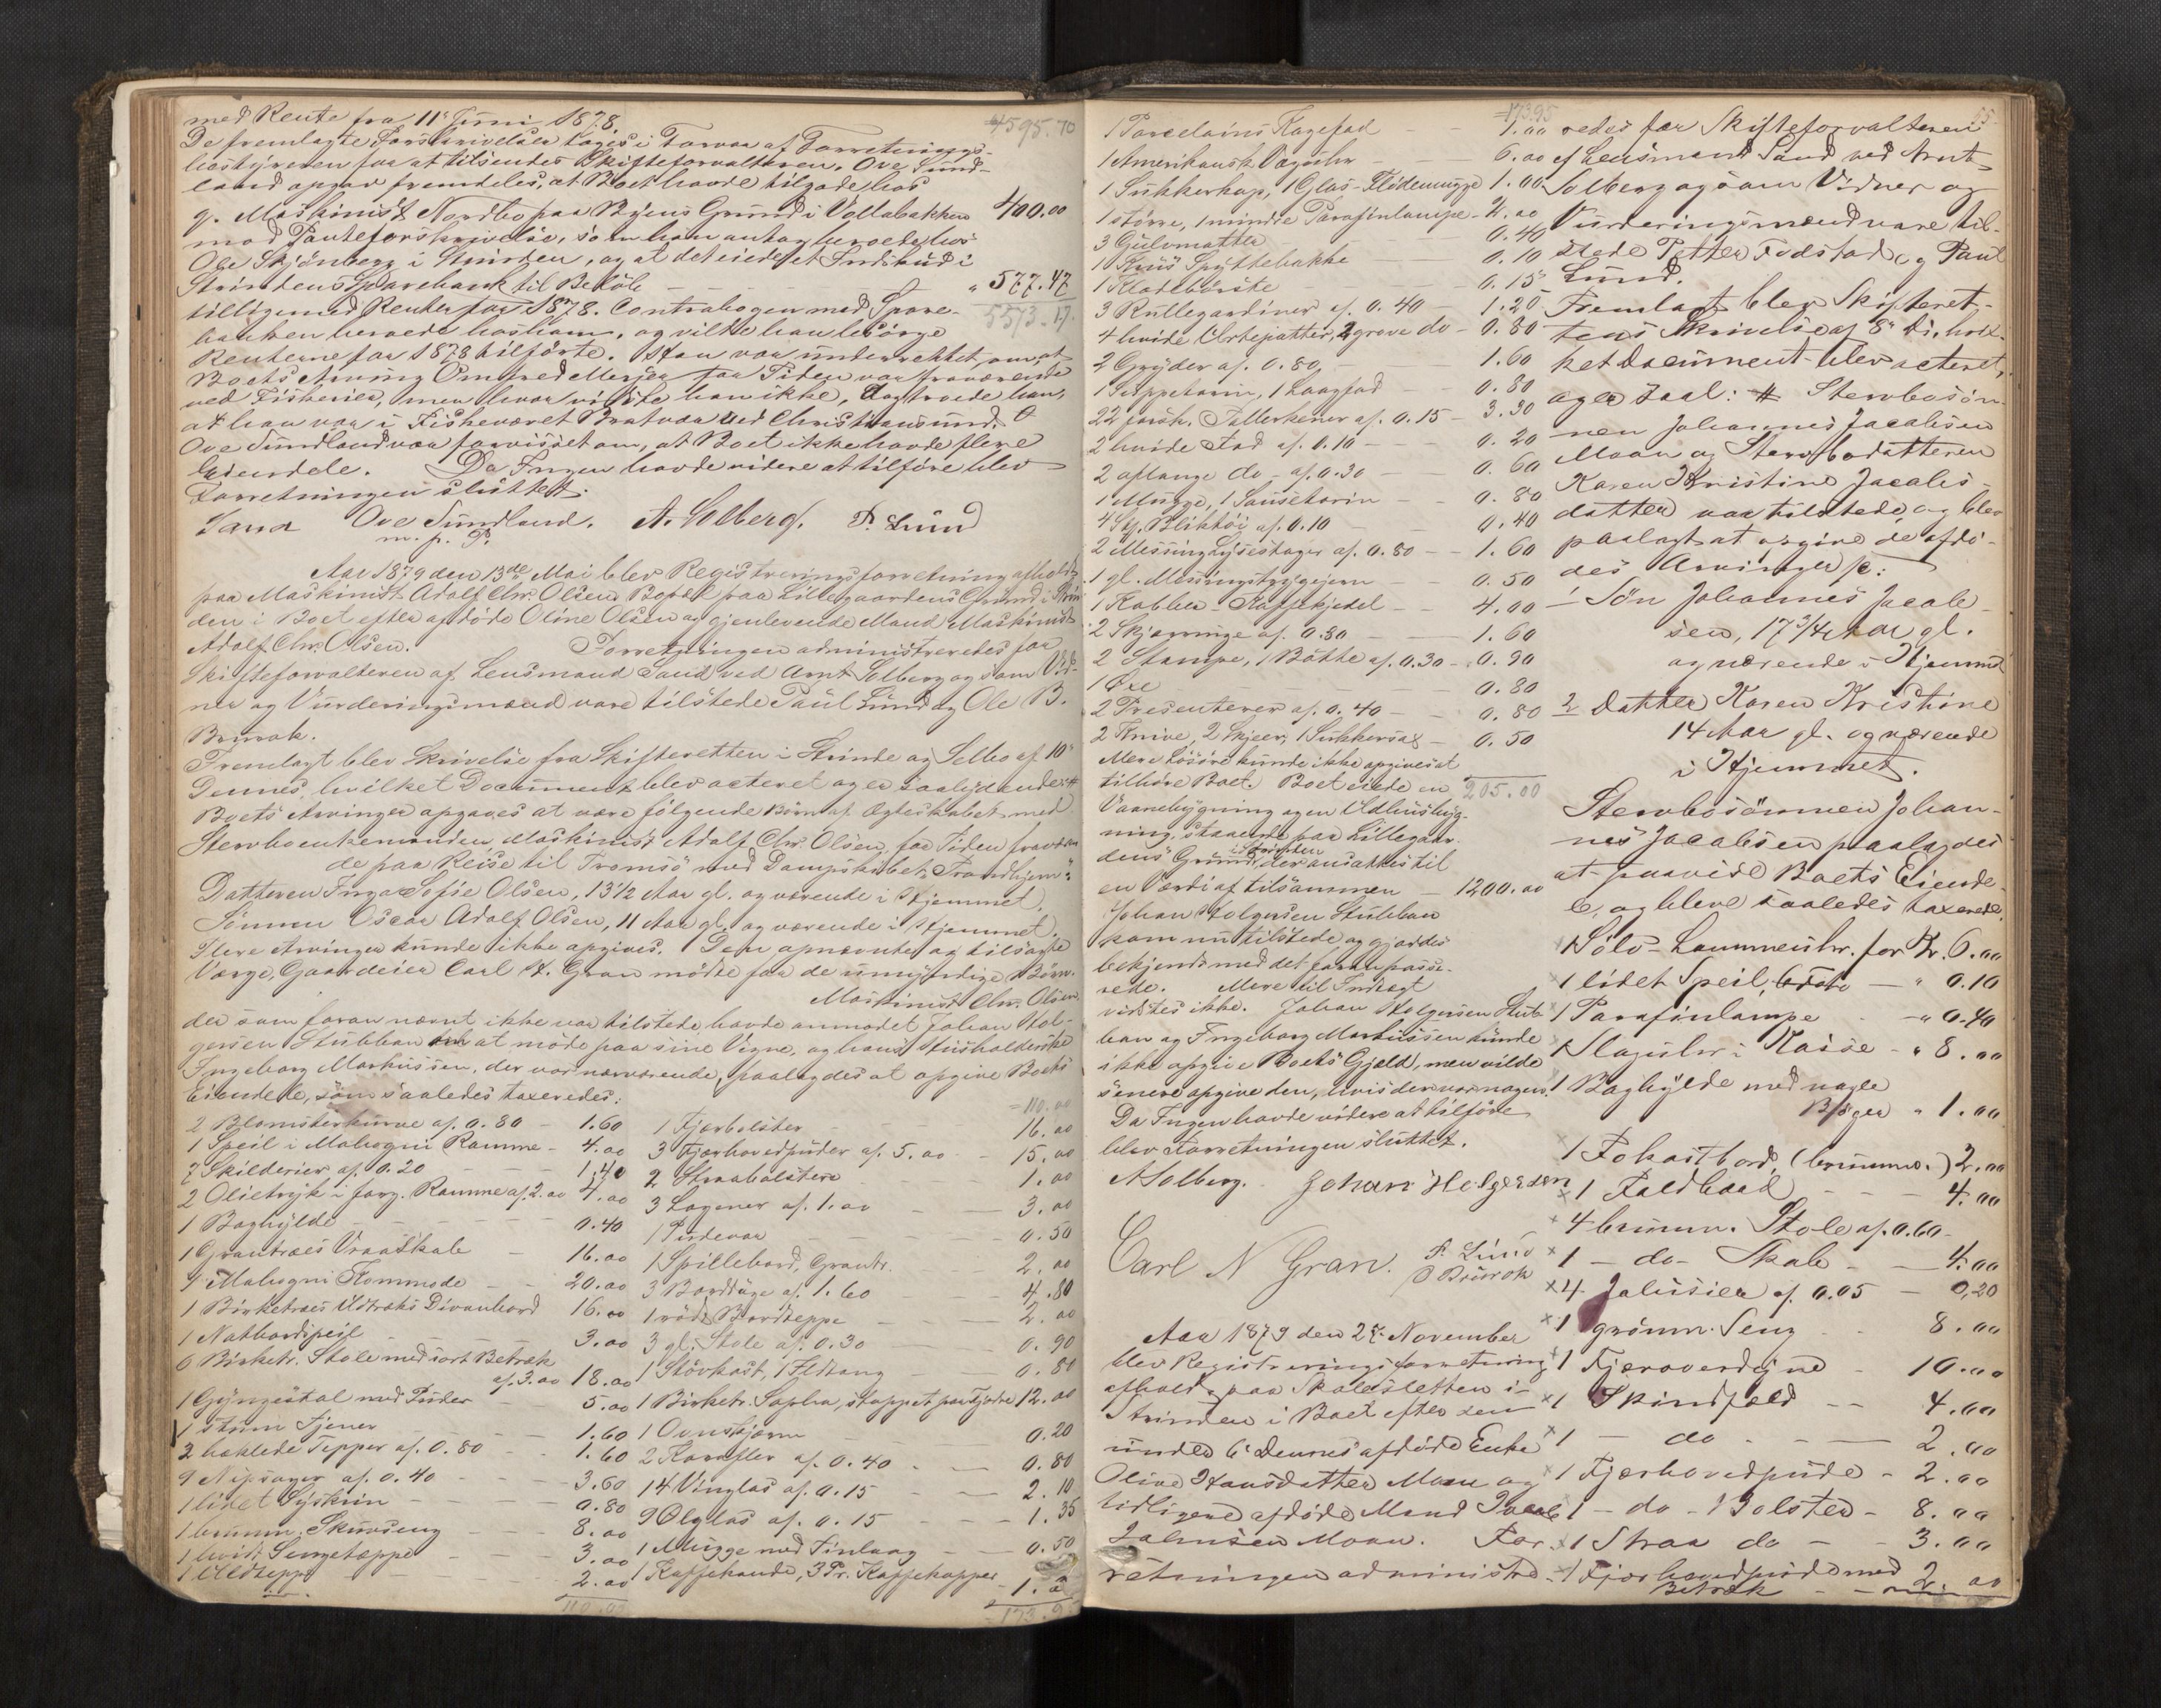 med Rente fra 11' Juni 1878.
4595.70
De fremlagte Forskrivelser toges i Forvar af Forretnings-
bestyreren for at tilsendes Skifteforvalteren. Ove Sund-
land opgav fremdeles, at Boet havde tilgode hos
g. Maskinist Nordbo paa Byens Grund i Vollabakken 400.00
mod Panteforskrivelse, som han antog beroede hos
Ole Skjönberg i Strinden, og at det eiede et Indskud i
Strindens Sparebank til Belöb - - - " 577.47
tilligemed Renter for 1878. Contrabogen med Spare- 5573.17
banken beroede hos ham, og vilde han besörge
Renterne for 1878 tilförte. Han var underrettet om, at
Boets Arving Omfred Meyer for Tiden var fraværende
ved Fisheries, men hvor vidste han ikke, dog troede han,
at han var i Fiskeværet Bratvær ved Christiansund.
Ove Sundland var forvisset om, at Boet ikke havde flere
Eiendele. Da Ingen havde videre at tilföre blev
Forretningen sluttet.
Sand Ove Sundland. A. Solberg. P. Lund
m. p. P.
Aar 1879 den 13de Mai blev Registreringsforretning afholdt
paa Maskinist Adolf Chr. Olsens Bopæl paa Lillegaardens Grund i Strin
den i Boet efter afdöde Oline Olsen og gjenlevende Mand Maskinist
Adolf Chr. Olsen. Forretningen administreredes for
Skifteforvalteren af Lensmand Sand ved Arnt Solberg og som Vid-
ner og Vurderingsmænd vare tilstede Paul Lund og Ole B.
Brurok.
Fremlagt blev Skrivelse fra Skifteretten i Strinde og Selbo af 10'
Dennes, hvilket Document blev acteret og er saalydende: #
Boets Arvinger opgaves at være fölgende Börn af Ægteskabet med
Stervboenkemanden, Maskinist Adolf Chr. Olsen, for Tiden fraværen
de paa Reise til Tromsö med Dampskibet "Trondhjem":
Datteren Inga Sofie Olsen, 13 1/2 Aar gl. og værende i Hjemmet.
Sönnen Oscar Adolf Olsen, 11 Aar gl. og værende i Hjemmet.
Flere Arvinger kunde ikke opgives. Den opnævnte og tilsagte
Værge, Gaardeier Carl N. Gran mödte for de umyndige Börn.
Maskinist Chr. Olsen
der som foran nævnt ikke var tilstede, havde anmodet Johan Hol-
gersen Stubban om at möde paa sine Vegne, og hans Husholderske
Ingeborg Markussen, der var nærværende, paalagdes at opgive Boets
Eiendele, som saaledes taxeredes:
2 Blomsterkurve af 0.80 - 1.60
1 Speil i Mahogni Ramme - 4.00
7 Skilderier af 0.20 - - 1.40
2 Olietryk i forg. Ramme af 2.00 4.00
1 Boghylde - - - 0.40
1 Grantræes Vraaskab - 16.00
1 Mahogni Kommode - - 20.00
1 Birketræes Udtræks Divanbord 16.00
1 Natbordspeil - - 3.00
6 Birketr. Stole med sort Betræk
af 3.00 18.00
1 Gyngestol med Puder - 5.00
1 stum Tjener - - 1.60
2 hæklede Tepper af 0.80 - 1.60
9 Nipsager af 0.40 - - 3.60
1 lidet Syskrin - - - 0.80
1 brunm. Skuvseng - - 8.00
1 hvidt Sengetæppe - - 3.00
1 Uldteppe - - - 2.00
110.00
110.00
1 Fjærbolster - - - 16.00
3 Fjærhovedpuder af 5.00 - 15.00
2 Straabolstere - - 1.00
3 Lagener af 1.00 - - 3.00
1 Pudevar - - - 0.50
1 Spillebord, Grantr. - - 2.00
3 Bordduge af 1.60 - - 4.80
1 röd Bordteppe - - 2.00
3 gl. Stole af 0.30 - - 0.90
1 Stövkost, 1 Ildtang - - 0.80
1 Birketr. Sopha, stoppet paa Fjædre 12.00
1 Ovnsskjærm - - 0.20
2 Karafler af 0.40 - - 0.80
14 Vinglas af 0.15 - - 2.10
9 Ølglas af 0.15 - - 1.35
1 Mugge med Tinlaag - - 0.50
1 Kaffekande, 3 Pr. Kaffekopper -
173.95
173.95
1 Porcelains Kagefad - - 1.00
1 Amerikansk Vægouhr - - 6.00
1 Sukkerkop, 1 Glas-Flödemugge 1.00
1 större, 1 mindre Parafinlampe - 2.00
3 Gulvmatter - - 0.40
1 Spyttebakke - - 0.10
1 Klædebörste - - 0.15
3 Rullegardiner af 0.40 - 1.20
4 hvide Urtepotter, 2 grove do - 0.80
2 Gryder af 0.80 - - 1.60
1 Suppeterrin, 1 Laagfad - - 0.80
22 forsk. Tallerkener af 0.15 - 3.30
2 hvide Fad af 0.10 - - 0.20
2 aflange do - af 0.30 - 0.60
1 Mugge, 1 Sauseterrin - - 0.80
4 St. Bliktöi af 0.10 - 0.40
2 Messing Lysestager af 0.80 - - 1.60
1 gl. Messingstrygejern - - 0.50
1 Kobber-Kaffekjedel - - 4.00
2 Skjæringe af 0.80 - - 1.60
2 Stampe, 1 Bötte af 0.30 - 0.90
1 Øxe - - - 0.80
2 Presenterer af 0.40 - - 0.80
2 Knive, 2 Skjeer, 1 Sukkersax - 0.50
Mere Lösöre kunde ikke opgives at
tilhöre Boet. Boet eiede en 205.00
Vaanebygning og en Udhusbyg-
ning, staaende paa Lillegaar-
dens Grund i Strinden, der ansattes til
en Værdi af tilsammen - 1200.00
Johan Holgersen Stubban
kom nu tilstede og gjordes
bekjendt med det foran passe-
rede. Mere til Indtægt
vidstes ikke. Johan Holgersen Stub-
ban og Ingeborg Markussen kunde
ikke opgive Boets Gjæld, men vilde
senere opgive den, hvis der var nogen.
Da Ingen havde videre at tilföre
blev Forretningen sluttet.
A Solberg. Johan Holgersen
Carl N Gran. P. Lund
O Brurok
Aar 1879 den 25' November
blev Registreringsforretning
afholdt paa Skolesletten i
Strinden i Boet efter den
under 6' Dennes afdöde Enke
Oline Hansdatter Moan og
tidligere afdöde Mand Jacob
Johnsen Moan. For-
retningen administre-
55
redes for Skifteforvalteren
af Lensmand Sand ved Arnt
Solberg og som Vidner og
Vurderingsmænd vare til-
stede Petter Fodstad og Paul
Lund.
Fremlagt blev Skifteret-
tens Skrivelse af 8' ds, hvil-
ket Document blev acteret,
og er saal: # Stervbosön-
nen Johannes Jacobsen
Moan og Stervbodatteren
Karen Kristine Jacobs-
datter var tilstede, og blev
paalagt at opgive de afdö-
des Arvinger sc:
1 Sön Johannes Jacob-
sen, 17 3/4 Aar gl.
og værende i Hjemmet
2 Datter Karen Kristine
14 Aar gl. og værende
i Hjemmet.
Stervbosönnen Johan-
nes Jacobsen paalagdes
at paavise Boets Eiende-
le, og bleve saaledes taxerede:
1 Sölv-Lommeuhr. for Kr. 6.00
1 lidet Speil, - " 0.10
1 Parafinlampe - " 0.40
1 Slaguhr i Kasse - " 8.00
1 Boghylde med nogle
Böger " 1.00
1 Fokostbord, (brunmo.) 2.00
1 Foldbord - - - 4.00
4 brunm. Stole af 0.60 -
1 - do - Skab - - 4.00
4 Jalusier af 0.05 - 0,20
1 grönm. Seng - 8.00
1 Fjæroverdyne - 10.00
1 Skindfeld - - 4.00
1 - do - - 2.00
1 Fjærhovedpude - 2.00
1 - do - Bolster - 8.00
1 Straa do - - 3.00
1 Fjærhovedpude med 2.00
Betræk - -